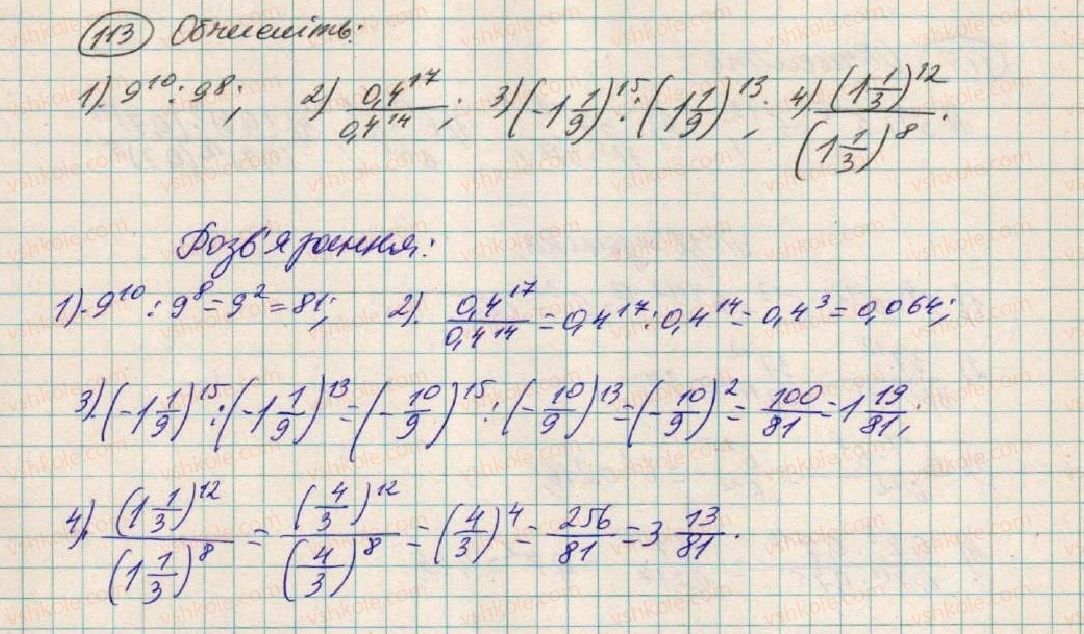 113 Обчисліть:
1). 9¹⁰ : 9⁸; 2) 0,4¹⁷/0,4¹⁴; 3) (-1 1/9)¹⁵ : (-1 1/9)¹³; 4) (1 1/3)¹²/(1 1/3)⁸.
Розв'язання:
1). 9¹⁰ : 9⁸ = 9² = 81; 2). 0,4¹⁷/0,4¹⁴ = 0,4¹⁷ : 0,4¹⁴ = 0,4³ = 0,064;
3). (-1 1/9)¹⁵ : (-1 1/9)¹³ = (-10/9)¹⁵ : (-10/9)¹³ = (-10/9)² = 100/81 = 1 19/81;
4). (1 1/3)¹²/(1 1/3)⁸ = (4/3)¹²/(4/3)⁸ = (4/3)⁴ = 256/81 = 3 13/81.